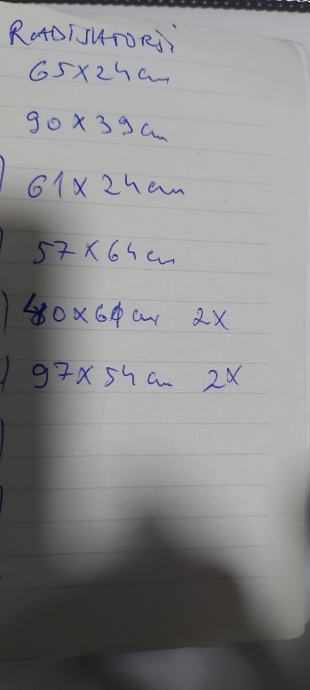 RADIJATORJI
65X24cm
90X39cm
61X24cm
57X64cm
cm 2X
97X54cm 2X